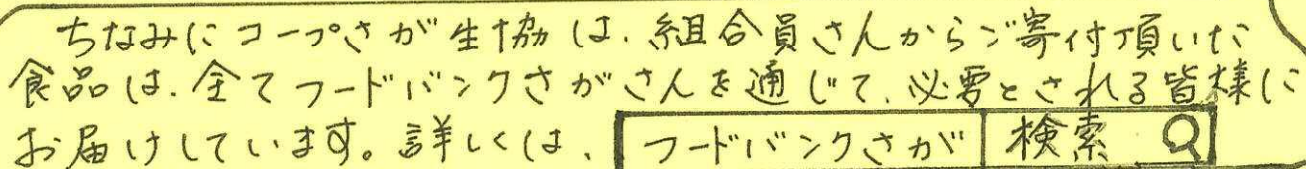 ちなみにコープさが生協は、組合員さんからご寄付頂いた
食品は、全てフードバンクさがさんを通じて、必要とされる皆様に
お届けしています。詳しくは、フードバンクさが 検索